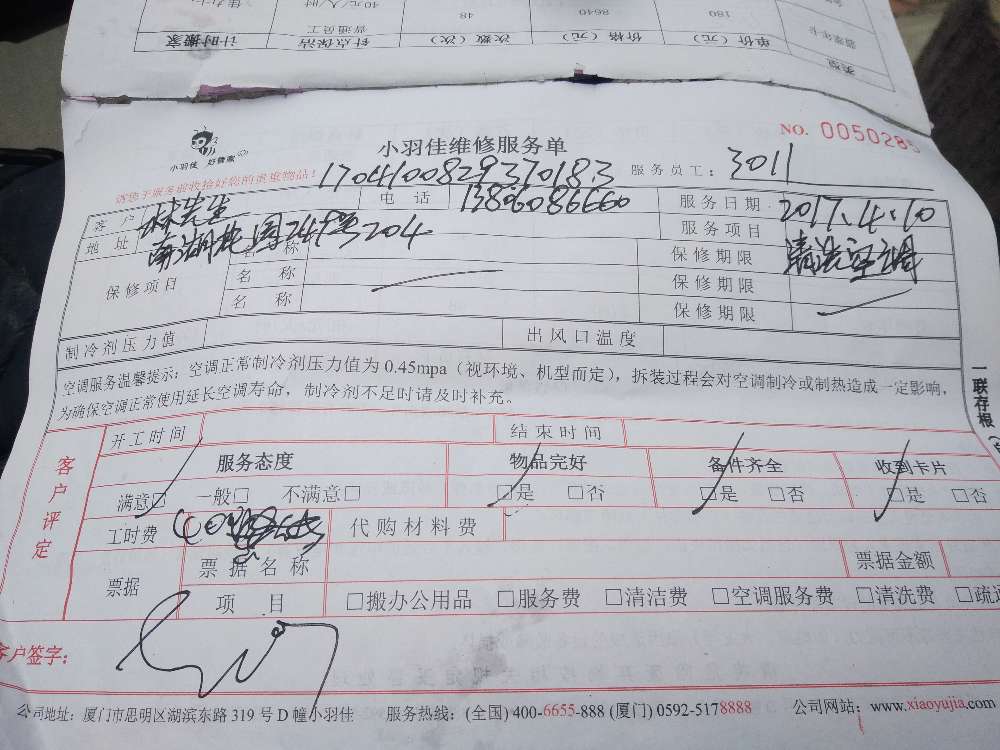 计时搬家 针点保洁 次数（次） 价格（元） 单价（元） 类型
40元/人/时 普通员工 48 8640 180
小羽佳 好管家
小羽佳维修服务单
NO. 005028
请您于服务前收拾好您的贵重物品！
1704100829370183 服务员工： 3011
客户 林先生 电话 13806086660 服务日期 2017.4.10
地址 南湖花园249号204 服务项目 清洗空调
保修项目 名称 保修期限
名称 保修期限
名称 保修期限
制冷剂压力值 出风口温度
空调服务温馨提示：空调正常制冷剂压力值为 0.45mpa（视环境、机型而定），拆装过程会对空调制冷或制热造成一定影响，
为确保空调正常使用延长空调寿命，制冷剂不足时请及时补充。
一联存根
客户评定
开工时间 结束时间
服务态度 物品完好 备件齐全 收到卡片
满意□ 一般□ 不满意□ □是 □否 □是 □否 □是 □否
工时费 代购材料费
票据 票据名称 票据金额
项目 □搬办公用品 □服务费 □清洁费 □空调服务费 □清洗费 □疏通
客户签字：
公司地址：厦门市思明区湖滨东路 319 号 D 幢小羽佳 服务热线：(全国) 400-6655-888 (厦门) 0592-5178888 公司网站：www.xiaoyujia.com